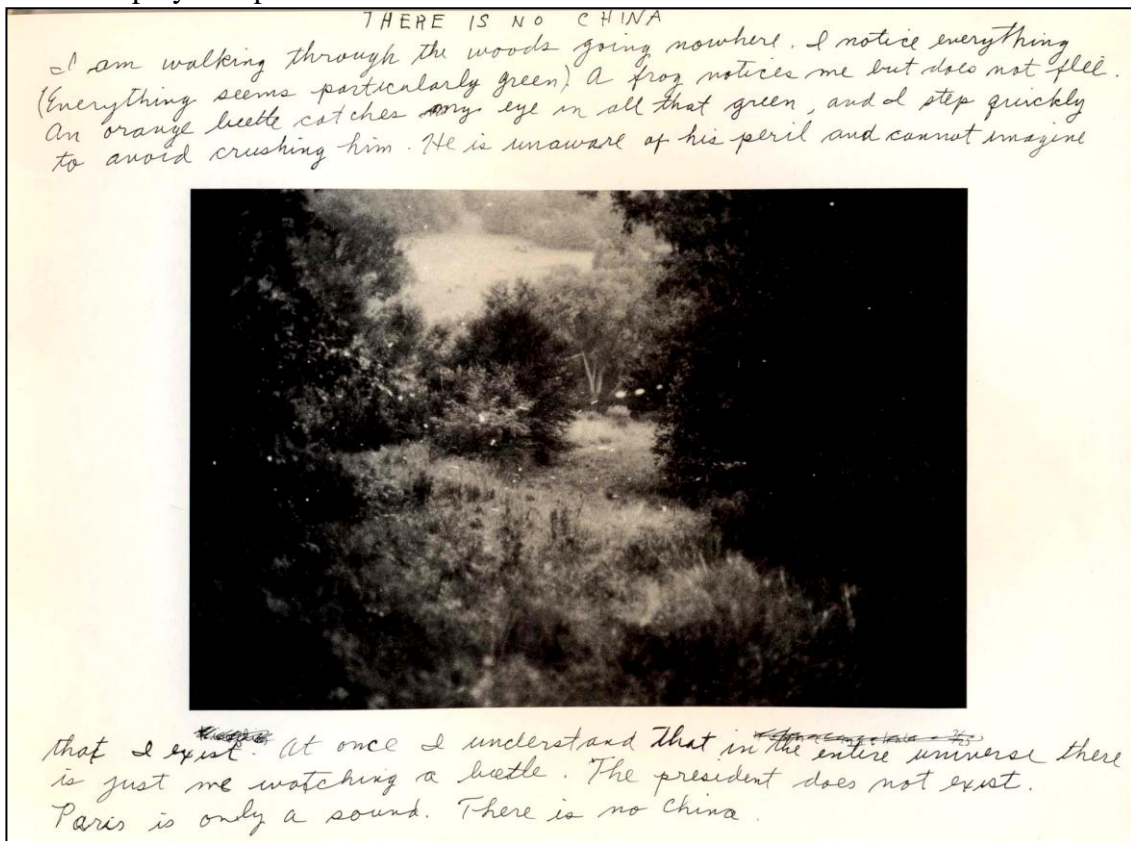 THERE IS NO CHINA
I am walking through the woods going nowhere. I notice everything
(Everything seems particularly green) A frog notices me but does not flee.
An orange beetle catches my eye in all that green, and I step quickly
to avoid crushing him. He is unaware of his peril and cannot imagine
that I exist. At once I understand that in the entire universe there
is just me watching a beetle. The president does not exist.
Paris is only a sound. There is no China.